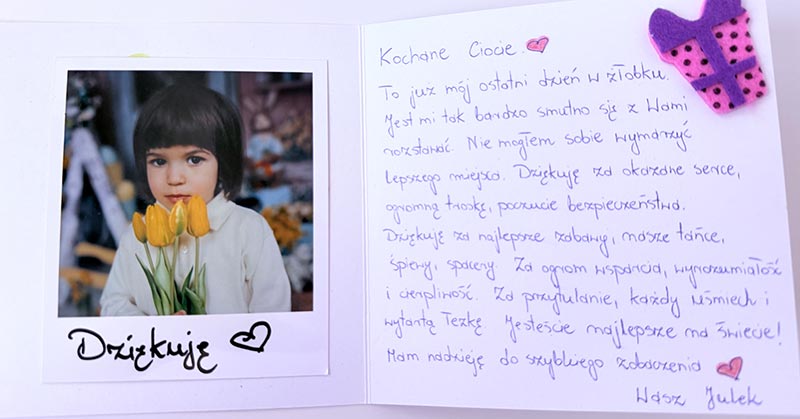 Dziękuję
Kochane Ciocie
To już mój ostatni dzień w żłobku.
Jest mi tak bardzo smutno się z Wami
rozstawać. Nie mogłem sobie wymarzyć
lepszego miejsca. Dziękuję za okazane serce,
ogromną troskę, poczucie bezpieczeństwa.
Dziękuję za najlepsze zabawy, nasze tańce,
śpiewy, spacery. Za ogrom wsparcia, wyrozumiałość
i cierpliwość. Za przytulanie, każdy uśmiech i
wytartą łezkę. Jesteście najlepsze na świecie!
Mam nadzieję do szybkiego zobaczenia
Wasz Julek